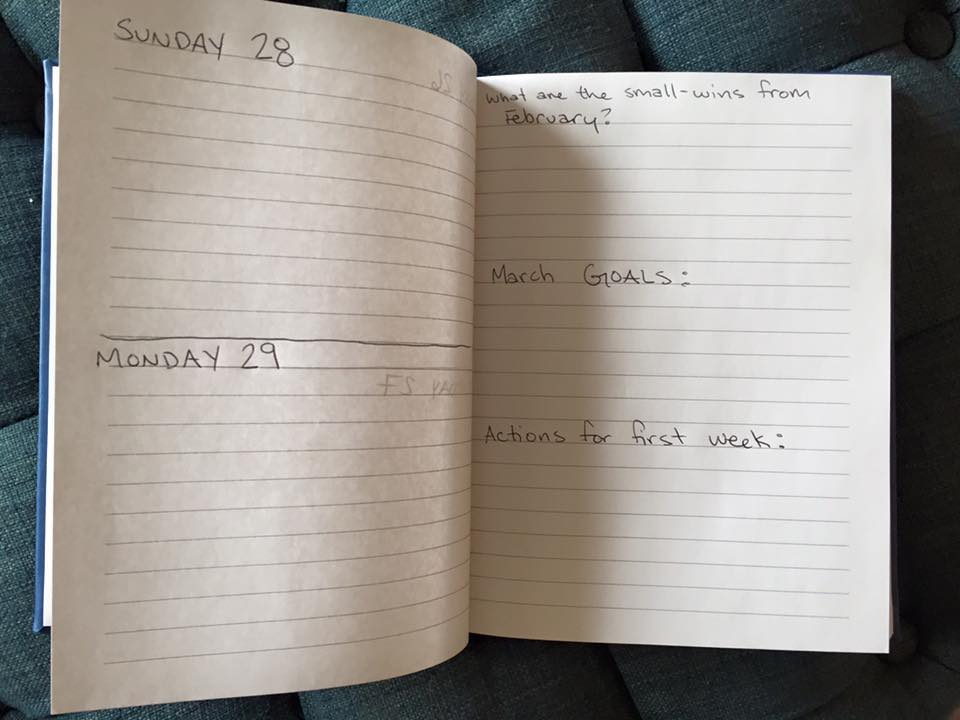 SUNDAY 28
MONDAY 29
What are the small-wins from
February?
March GOALS:
Actions for first week: